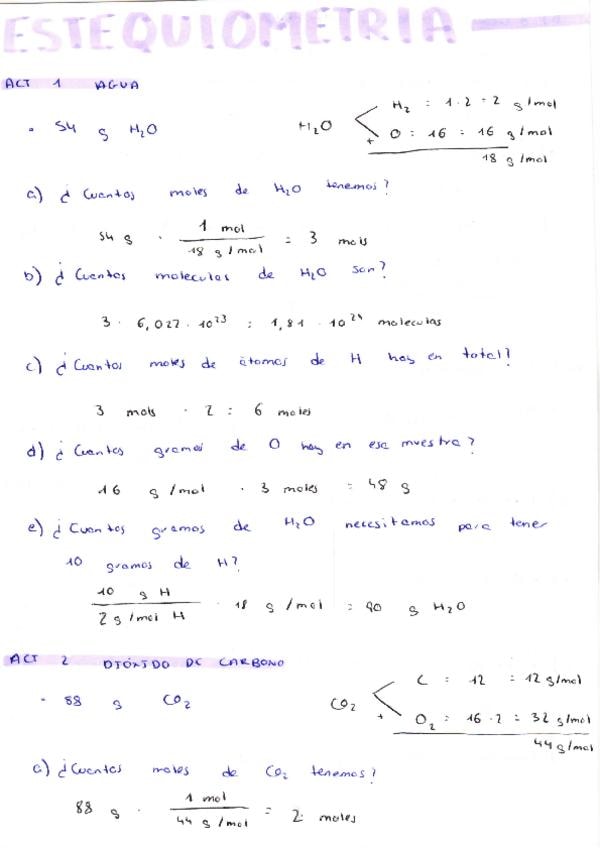 ESTEQUIOMETRIA
ACT 1 AGUA
- 54 g H₂O
H₂O
H₂ : 1·2 = 2 g/mol
+ O : 16 = 16 g/mol
18 g/mol
a) ¿Cuantos moles de H₂O tenemos?
54 g · 1 mol / 18 g/mol = 3 mols
b) ¿Cuantos moleculas de H₂O son?
3 · 6,022 · 10²³ = 1,81 · 10²⁴ moleculas
c) ¿Cuantos moles de átomos de H hay en total?
3 mols · 2 = 6 moles
d) ¿Cuantos gramos de O hay en esa muestra?
16 g/mol · 3 moles = 48 g
e) ¿Cuantos gramos de H₂O necesitamos para tener
10 gramos de H?
10 g H / 2 g/mol H · 18 g/mol = 90 g H₂O
ACT 2 DIÓXIDO DE CARBONO
- 88 g CO₂
CO₂
C : 12 = 12 g/mol
+ O₂ = 16·2 = 32 g/mol
44 g/mol
a) ¿Cuantos moles de CO₂ tenemos?
88 g · 1 mol / 44 g/mol = 2 moles